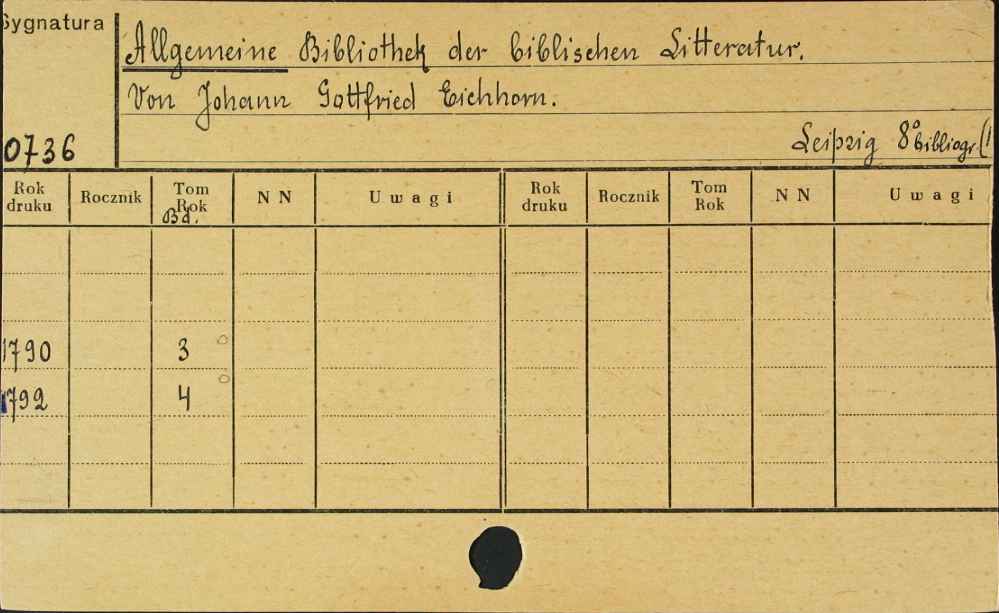 Sygnatura
Allgemeine Bibliothek der biblischen Litteratur.
Von Johann Gottfried Eichhorn.
0736
Leipzig 8° bibliogr. (1
Rok druku Rocznik Tom Rok N N Uwagi Rok druku Rocznik Tom Rok N N Uwagi
Bd.
1790 3
1792 4